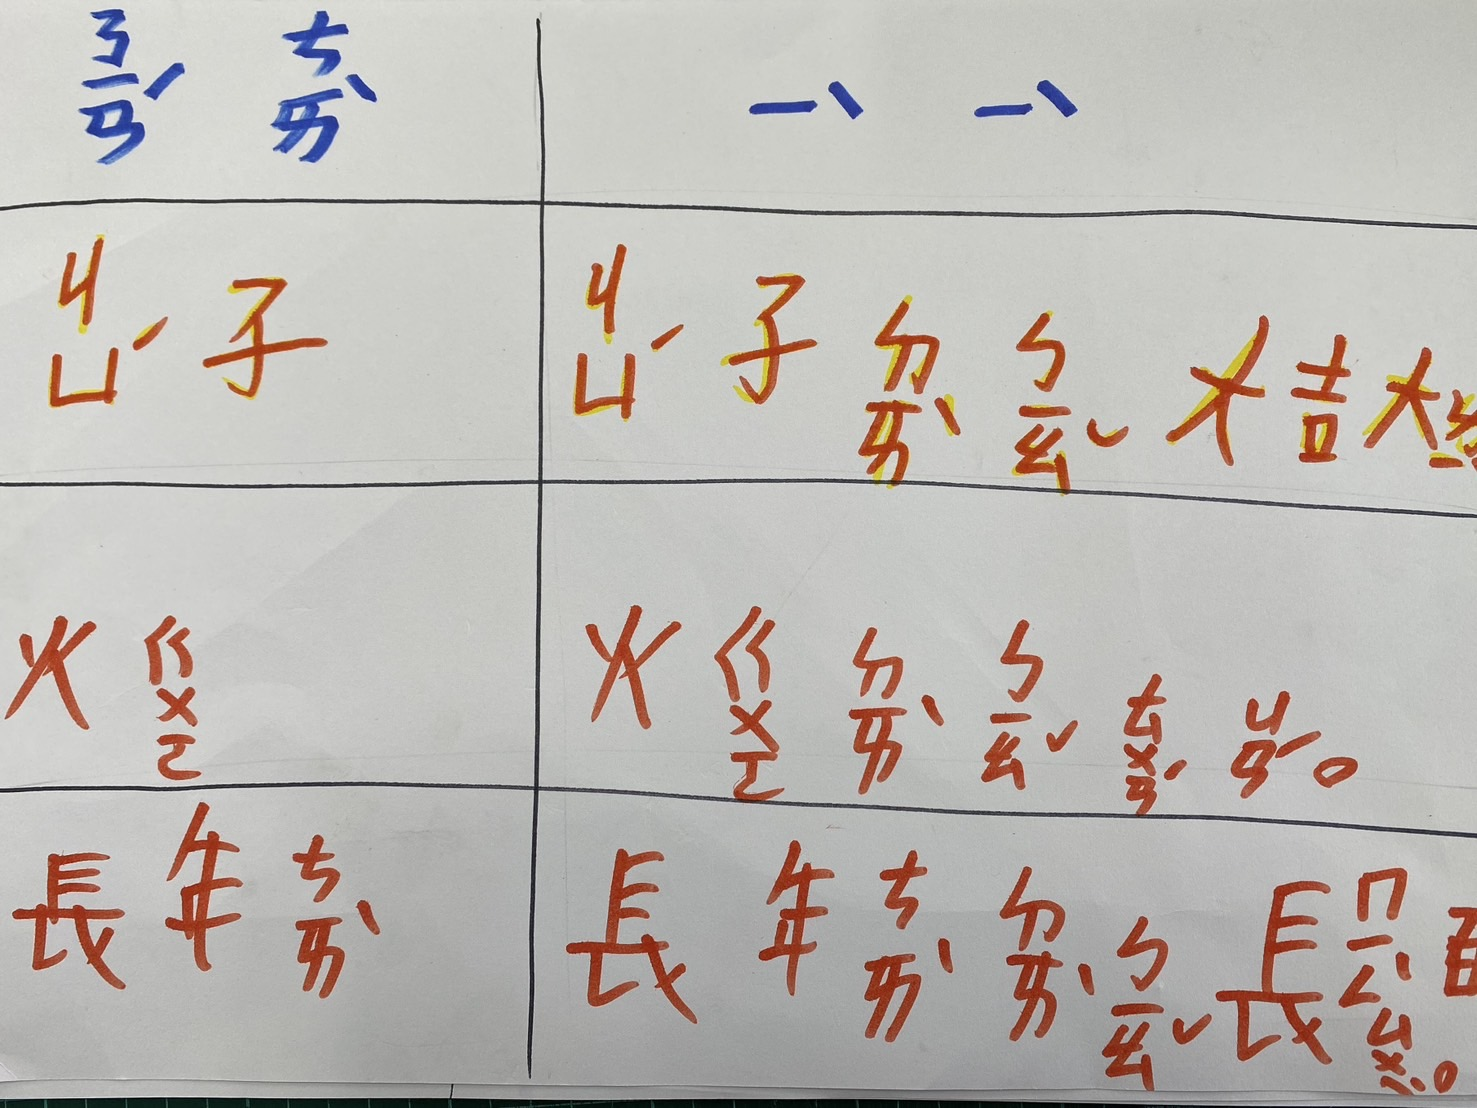 ㄋㄧㄢˊ ㄘㄞˋ
ㄧˋ ㄧˋ
ㄐㄩˊ子
ㄐㄩˊ子ㄉㄞˋㄅㄧㄠˇ大吉大
火ㄍㄨㄛ
火ㄍㄨㄛㄉㄞˋㄅㄧㄠˇㄊㄨㄢˊㄩㄢˊ。
長年ㄘㄞˋ
長年ㄘㄞˋㄉㄞˋㄅㄧㄠˇ長ㄇㄧㄥˋ百
ㄙㄨㄟˋ。